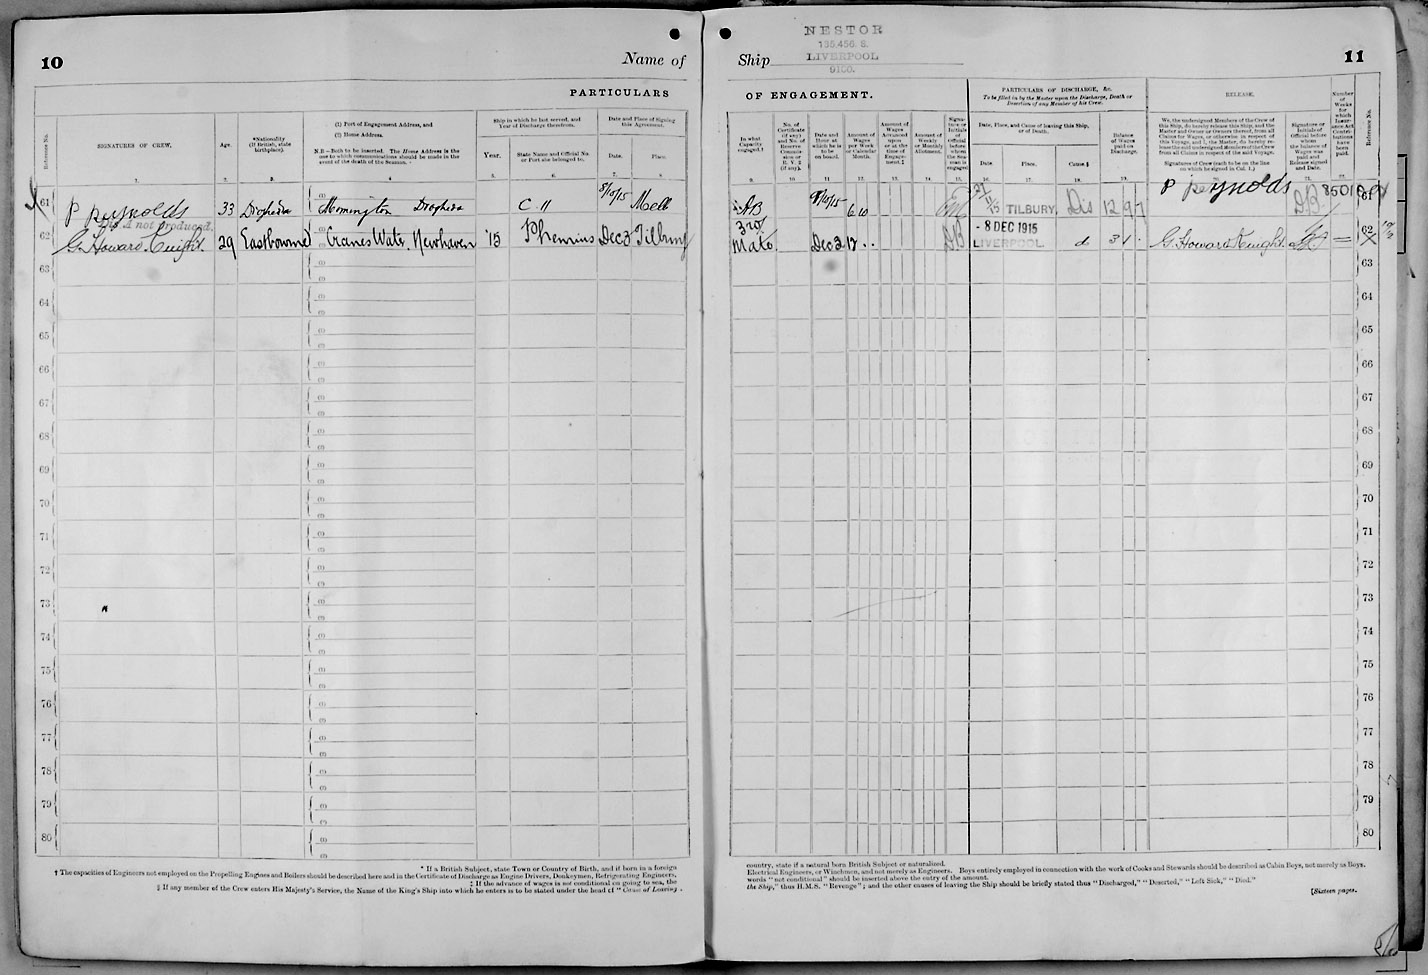 10
Name of
PARTICULARS
Reference No.
SIGNATURES OF CREW.
Age.
*Nationality
(If British, state
birthplace).
(1) Port of Engagement Address, and
(2) Home Address.
N.B.—Both to be inserted. The Home Address is the
one to which communications should be made in the
event of the death of the Seaman.
Ship in which he last served, and
Year of Discharge therefrom.
Year.
State Name and Official No.
or Port she belonged to.
Date and Place of Signing
this Agreement.
Date.
Place.
1. 2. 3. 4. 5. 6. 7. 8.
61 P Reynolds 33 Drogheda Mornington Drogheda C 11 8/10/15 Mell
Dis. A not produced.
62 G. Howard Knight 29 Eastbourne Cranes Wate, Newhaven '15 Phemius Dec 3 Tilbury
63
64
65
66
67
68
69
70
71
72
73
74
75
76
77
78
79
80
* If a British Subject, state Town or Country of Birth, and if born in a foreign
† The capacities of Engineers not employed on the Propelling Engines and Boilers should be described here and in the Certificate of Discharge as Engine Drivers, Donkeymen, Refrigerating Engineers,
‡ If the advance of wages is not conditional on going to sea, the
§ If any member of the Crew enters His Majesty's Service, the Name of the King's Ship into which he enters is to be stated under the head of "Cause of Leaving
Ship
NESTOR
135,456. S.
LIVERPOOL
11
OF ENGAGEMENT.
In what
Capacity
engaged.†
No. of
Certificate
(if any)
and No. of
Reserve
Commis-
sion or
R. V. 2
(if any).
Date and
Hour at
which he is
to be
on board.
Amount of
Wages
per Week
or Calendar
Month.
Amount of
Wages
Advanced
upon
or at the
time of
Engage-
ment.‡
Amount of
Weekly
or Monthly
Allotment.
Signa-
ture or
Initials
of
official
before
whom
the Sea-
man is
engaged
PARTICULARS OF DISCHARGE, &c.
To be filled in by the Master upon the Discharge, Death or
Desertion of any Member of his Crew.
Date, Place, and Cause of leaving this Ship,
or of Death.
Date.
Place.
Cause §
Balance
of Wages
paid on
Discharge.
RELEASE.
We, the undersigned Members of the Crew of
this Ship, do hereby release this Ship, and the
Master and Owner or Owners thereof, from all
Claims for Wages, or otherwise in respect of
this Voyage, and I, the Master, do hereby re-
lease the said undersigned Members of the Crew
from all Claims in respect of the said Voyage.
Signatures of Crew (each to be on the line
on which he signed in Col. 1.)
Signature or
Initials of
Official before
whom
the balance of
Wages was
paid and
Release signed
and Date.
Number
of
Weeks
for
which
Insur-
ance Act
Contri-
butions
have
been
paid.
Reference No.
9. 10. 11. 12. 13. 14. 15. 16. 17. 18. 19. 20. 21. 22.
AB 8/10/15 6 10 TILBURY. Dis 12 9 7 P Reynolds D.B. 61
3rd
Mate Dec 3 17 . . DB - 8 DEC 1915 LIVERPOOL. d 3 1 . G. Howard Knight 62
63
64
65
66
67
68
69
70
71
72
73
74
75
76
77
78
79
80
country, state if a natural born British Subject or naturalized.
Electrical Engineers, or Winchmen, and not merely as Engineers. Boys entirely employed in connection with the work of Cooks and Stewards should be described as Cabin Boys, not merely as Boys.
words "not conditional" should be inserted above the entry of the amount.
the Ship," thus H.M.S. "Revenge"; and the other causes of leaving the Ship should be briefly stated thus "Discharged," "Deserted," "Left Sick," "Died."
[Sixteen pages.